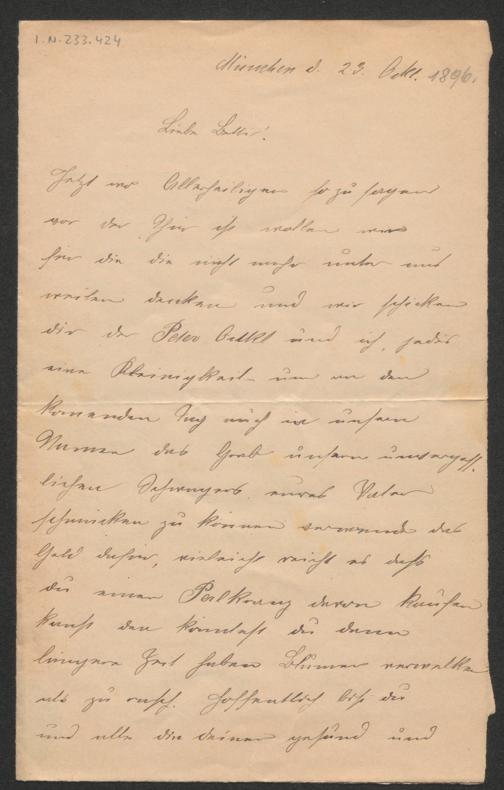 I.N. 233.424
München d. 23. Okt. 1896.
Liebe Betti!
Jetzt wo Allerheiligen so zu sagen
vor der Thür ist wollen wir
für die die nicht mehr unter uns
weilen denken und wir schicken
dir der Peter und ich, jeder
eine Kleinigkeit um an den
komenden Tag auch in unsern
Namen das Grab unsern unvergeß-
lichen Schwagers eures Vater
schmücken zu können verwende das
Geld dafür, vieleicht reicht es daß
du einen Perlkranz davon kaufen
kanst den köntest du dann
längere Zeit haben Blumen verwelken
als zu rasch. Hoffentlich bist du
und alle die deinen gesund und